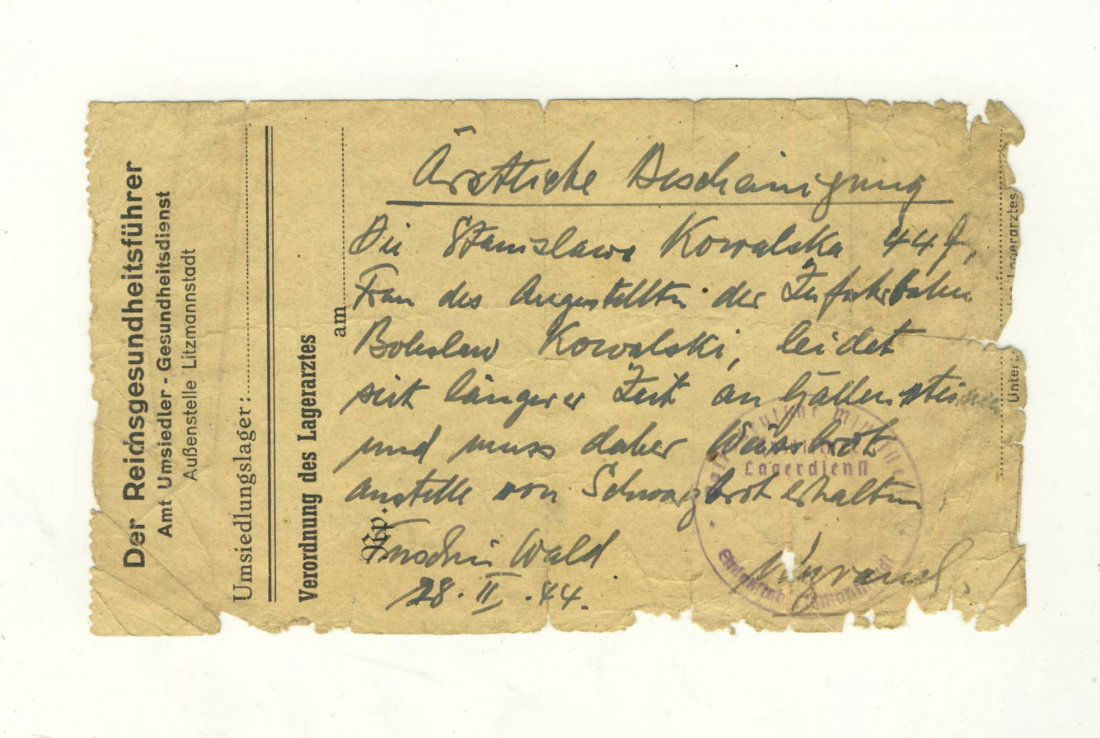 Der Reichsgesundheitsführer
Amt Umsiedler - Gesundheitsdienst
Außenstelle Litzmannstadt
Umsiedlungslager:
Verordnung des Lagerarztes
am
Rp.
Ärztliche Bescheinigung
Die Stanislawa Kowalska 44 J,
Frau des Angestellten der Zufuhrbahn
Boleslaw Kowalski, leidet
seit längerer Zeit an Gallensteinen
und muss daher Weissbrot
anstelle von Schwarzbrot erhalten
Wald
28. II. 44.
Lagerdienst
Lagerarztes
Unter